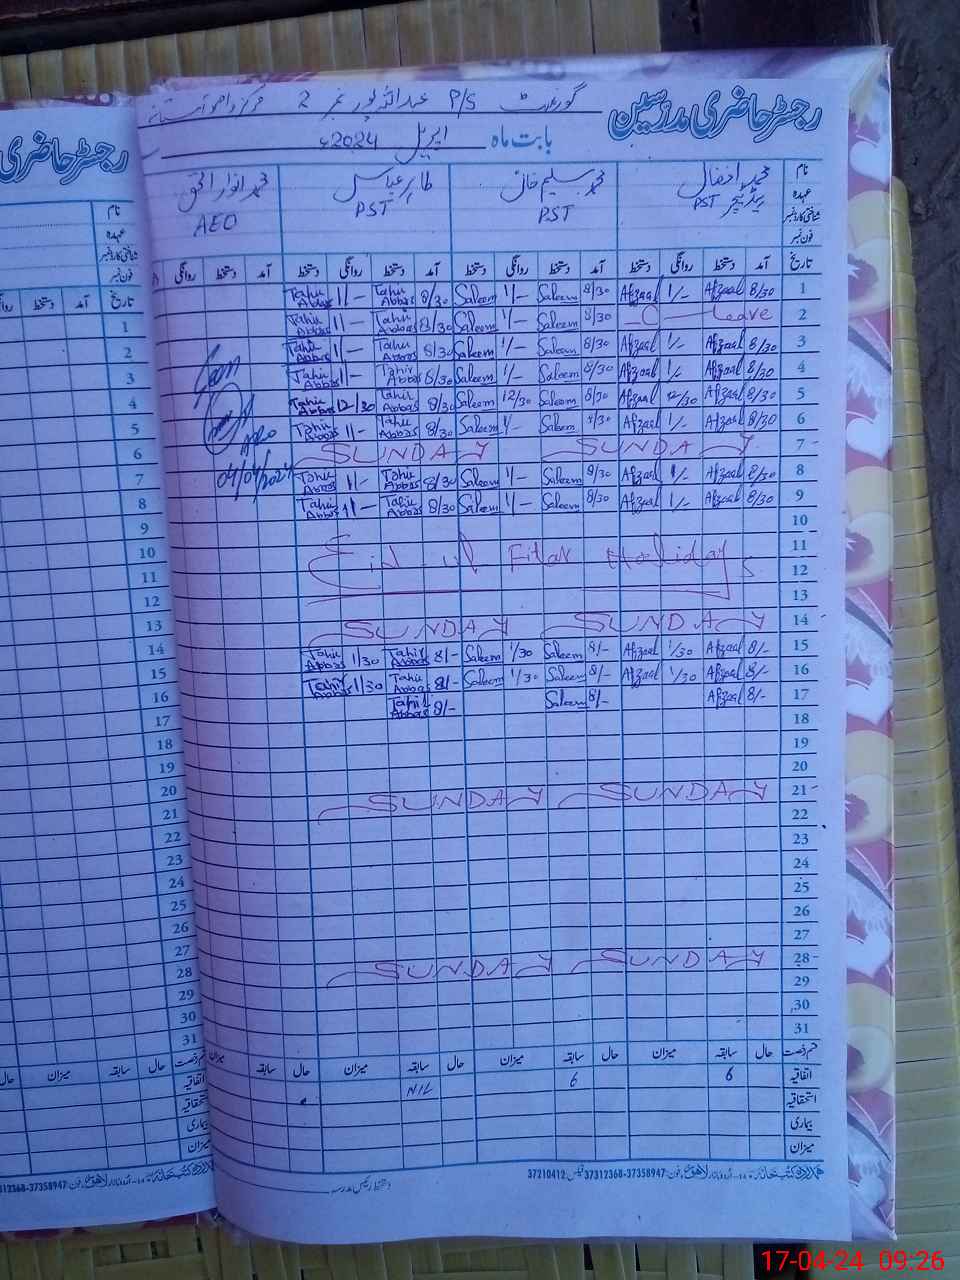 رجسٹر حاضری مدرسین
گورنمنٹ P/S عبداللہ پور نمبر 2 مرکز
بابت ماہ اپریل 2024ء
نام محمد افضال محمد سلیم خان طاہر عباس محمد انوار الحق
عہدہ ہیڈ ٹیچر PST PST PST AEO
شناختی کارڈ نمبر
فون نمبر
تاریخ آمد دستخط روانگی دستخط آمد دستخط روانگی دستخط آمد دستخط روانگی دستخط آمد دستخط روانگی
1 8/30 Afzaal 1/- Afzaal 8/30 Saleem 1/- Saleem 8/30 Tahir Abbas 1/- Tahir Abbas
2 Leave C 8/30 Saleem 1/- Saleem 8/30 Tahir Abbas 1/- Tahir Abbas
3 8/30 Afzaal 1/- Afzaal 8/30 Saleem 1/- Saleem 8/30 Tahir Abbas 1/- Tahir Abbas
4 8/30 Afzaal 1/- Afzaal 8/30 Saleem 1/- Saleem 8/30 Tahir Abbas 1/- Tahir Abbas
5 8/30 Afzaal 12/30 Afzaal 8/30 Saleem 12/30 Saleem 8/30 Tahir Abbas 12/30 Tahir Abbas
6 8/30 Afzaal 1/- Afzaal 8/30 Saleem 1/- Saleem 8/30 Tahir Abbas 1/- Tahir Abbas
AEO
04/04/2024
7 SUNDAY SUNDAY
8 8/30 Afzaal 1/- Afzaal 8/30 Saleem 1/- Saleem 8/30 Tahir Abbas 1/- Tahir Abbas
9 8/30 Afzaal 1/- Afzaal 8/30 Saleem 1/- Saleem 8/30 Tahir Abbas 1/- Tahir Abbas
10
11 Eid-ul Fitar Holidays
12
13
14 SUNDAY SUNDAY
15 8/- Afzaal 1/30 Afzaal 8/- Saleem 1/30 Saleem 8/- Tahir Abbas 1/30 Tahir Abbas
16 8/- Afzaal 1/30 Afzaal 8/- Saleem 1/30 Saleem 8/- Tahir Abbas 1/30 Tahir Abbas
17 8/- Afzaal 8/- Saleem 8/- Tahir Abbas
18
19
20
21 SUNDAY SUNDAY
22
23
24
25
26
27
28 SUNDAY SUNDAY
29
30
31
قسم رخصت حال سابقہ میزان حال سابقہ میزان حال سابقہ میزان حال سابقہ میزان
اتفاقیہ 6 6 NIL
استحقاقیہ
بیماری
میزان
فون: 37358947-37312368 فیکس: 37210412
دستخط رئیس مدرسہ
رجسٹر حاضری
نام
عہدہ
شناختی کارڈ نمبر
فون نمبر
تاریخ آمد دستخط روانگی
1
2
3
4
5
6
7
8
9
10
11
12
13
14
15
16
17
18
19
20
21
22
23
24
25
26
27
28
29
30
31
قسم رخصت حال سابقہ میزان حال
اتفاقیہ
استحقاقیہ
بیماری
میزان
17-04-24 09:26